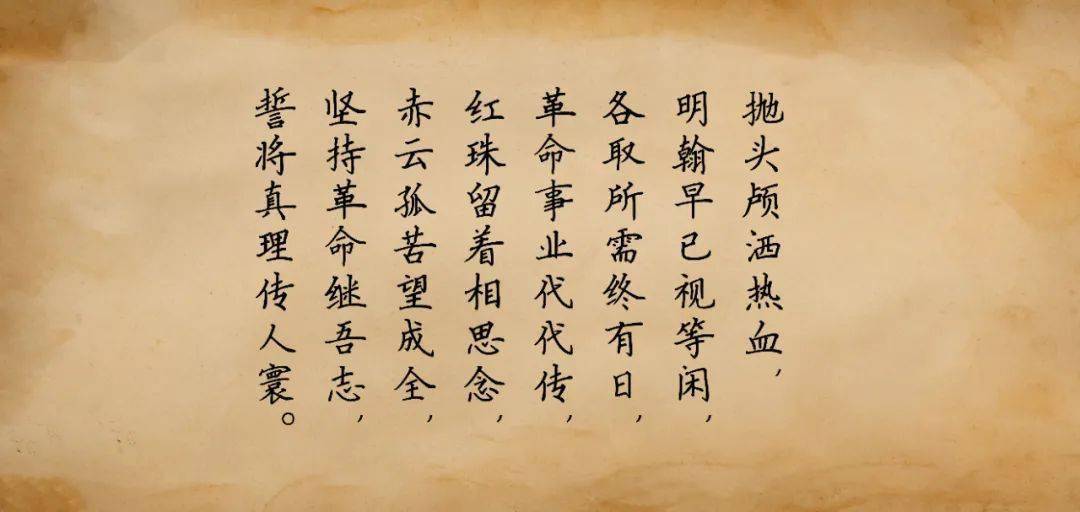 抛头颅洒热血，
明翰早已视等闲，
各取所需终有日，
革命事业代代传，
红珠留着相思念，
赤云孤苦望成全，
坚持革命继吾志，
誓将真理传人寰。